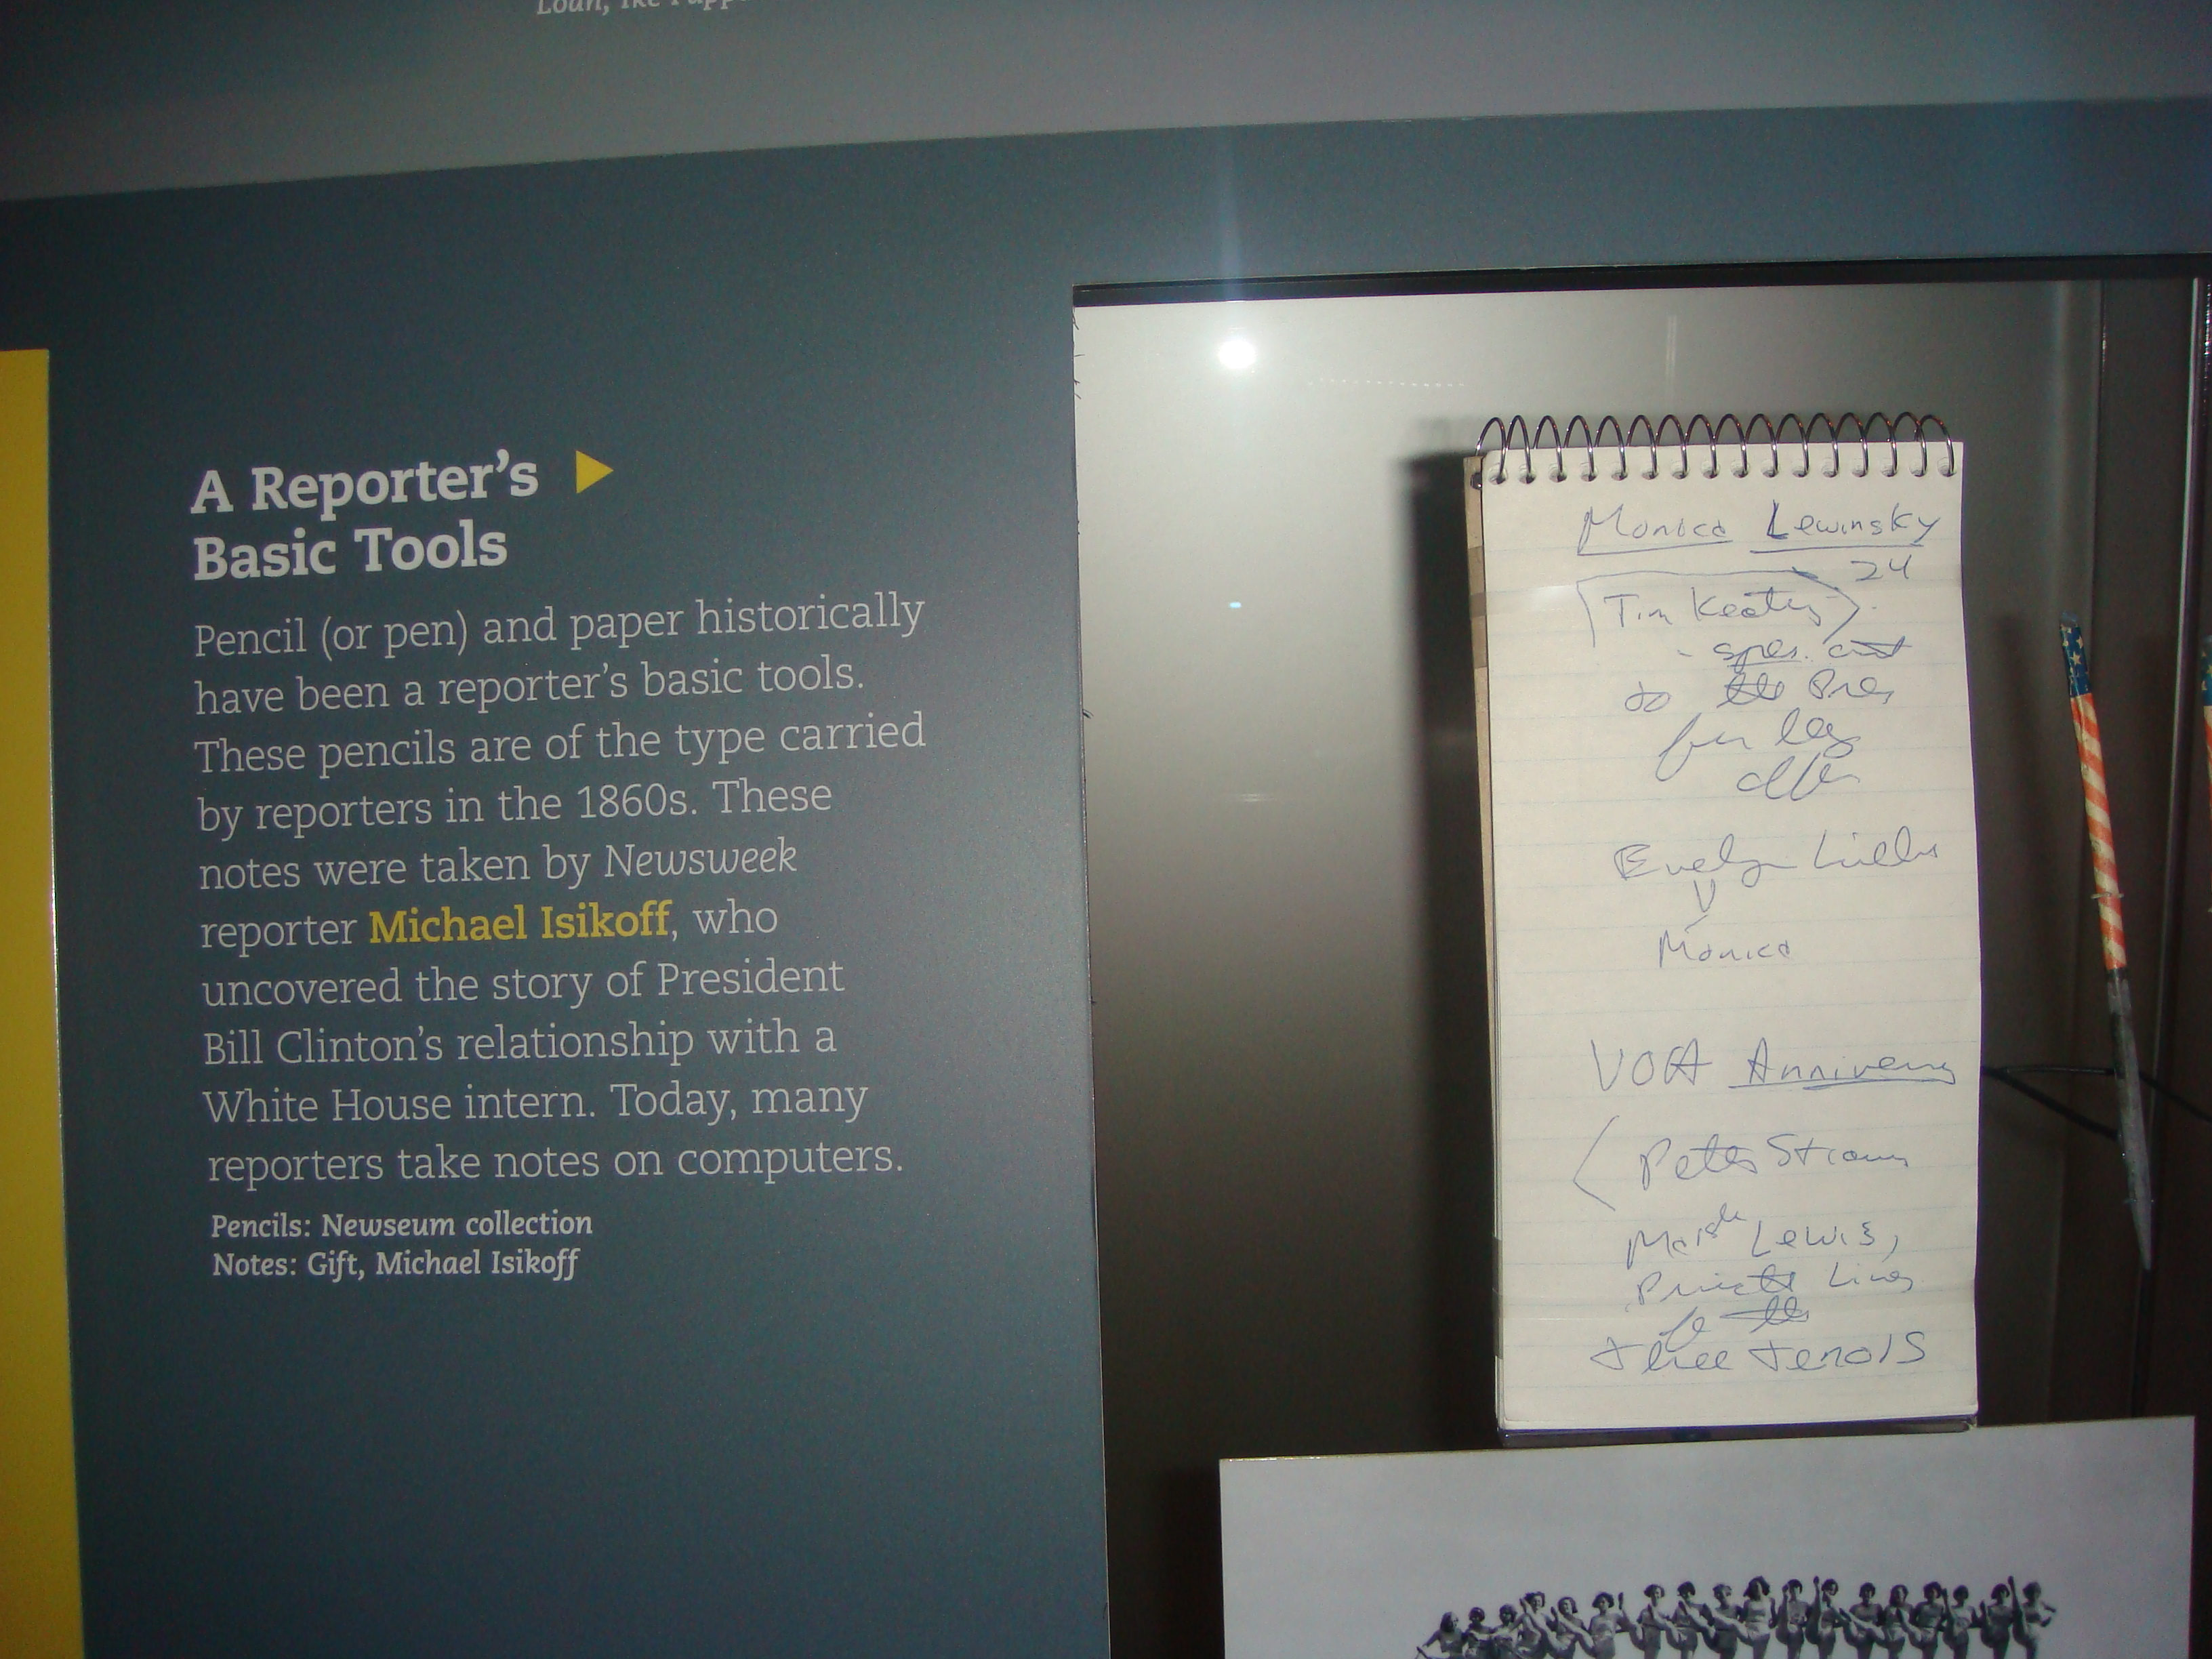 Loan, Ike
A Reporter's
Basic Tools
Pencil (or pen) and paper historically
have been a reporter's basic tools.
These pencils are of the type carried
by reporters in the 1860s. These
notes were taken by Newsweek
reporter Michael Isikoff, who
uncovered the story of President
Bill Clinton's relationship with a
White House intern. Today, many
reporters take notes on computers.
Pencils: Newseum collection
Notes: Gift, Michael Isikoff
Monica Lewinsky
24
Tim Keating
- spec. asst
to the Pres
for leg
affrs
Evelyn
Monica
VOA
Peter
Lewis,
Private Lives
of the
three tenors